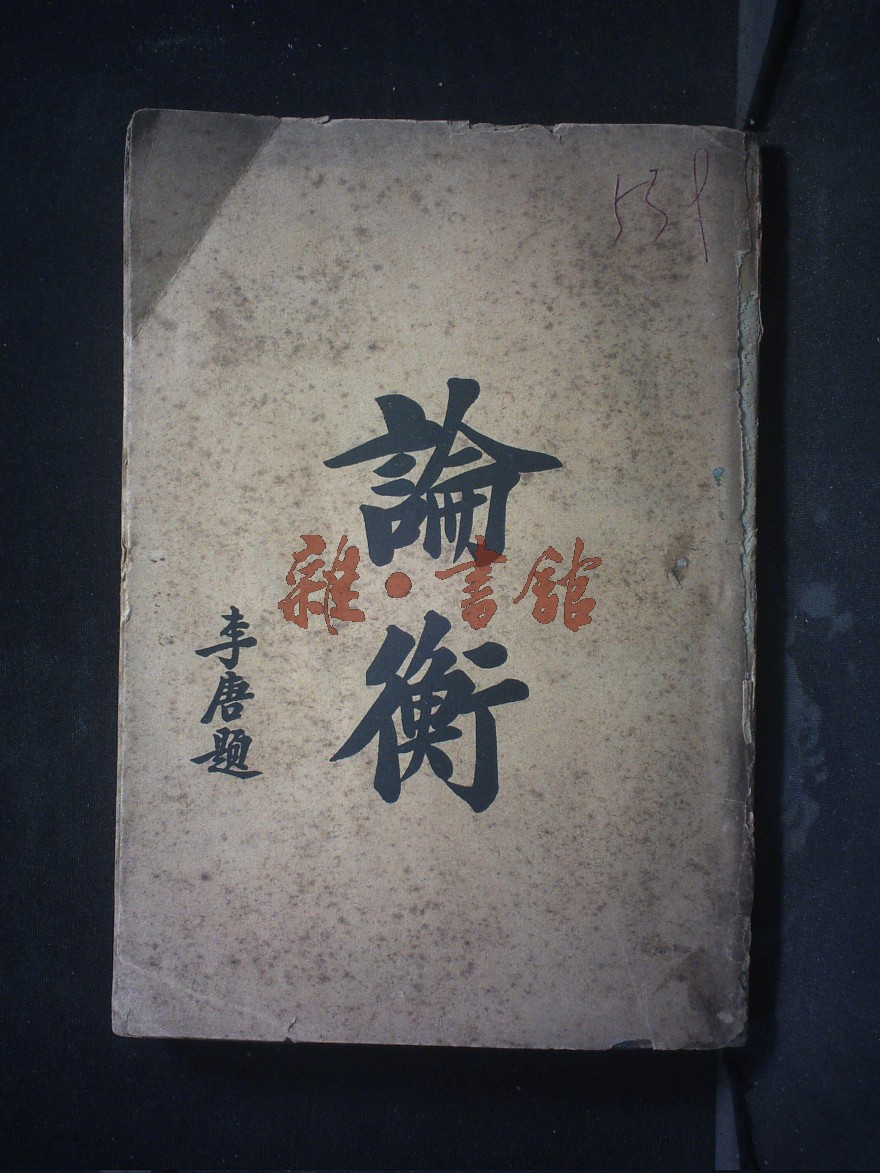 論衡
李唐題
雜·書館